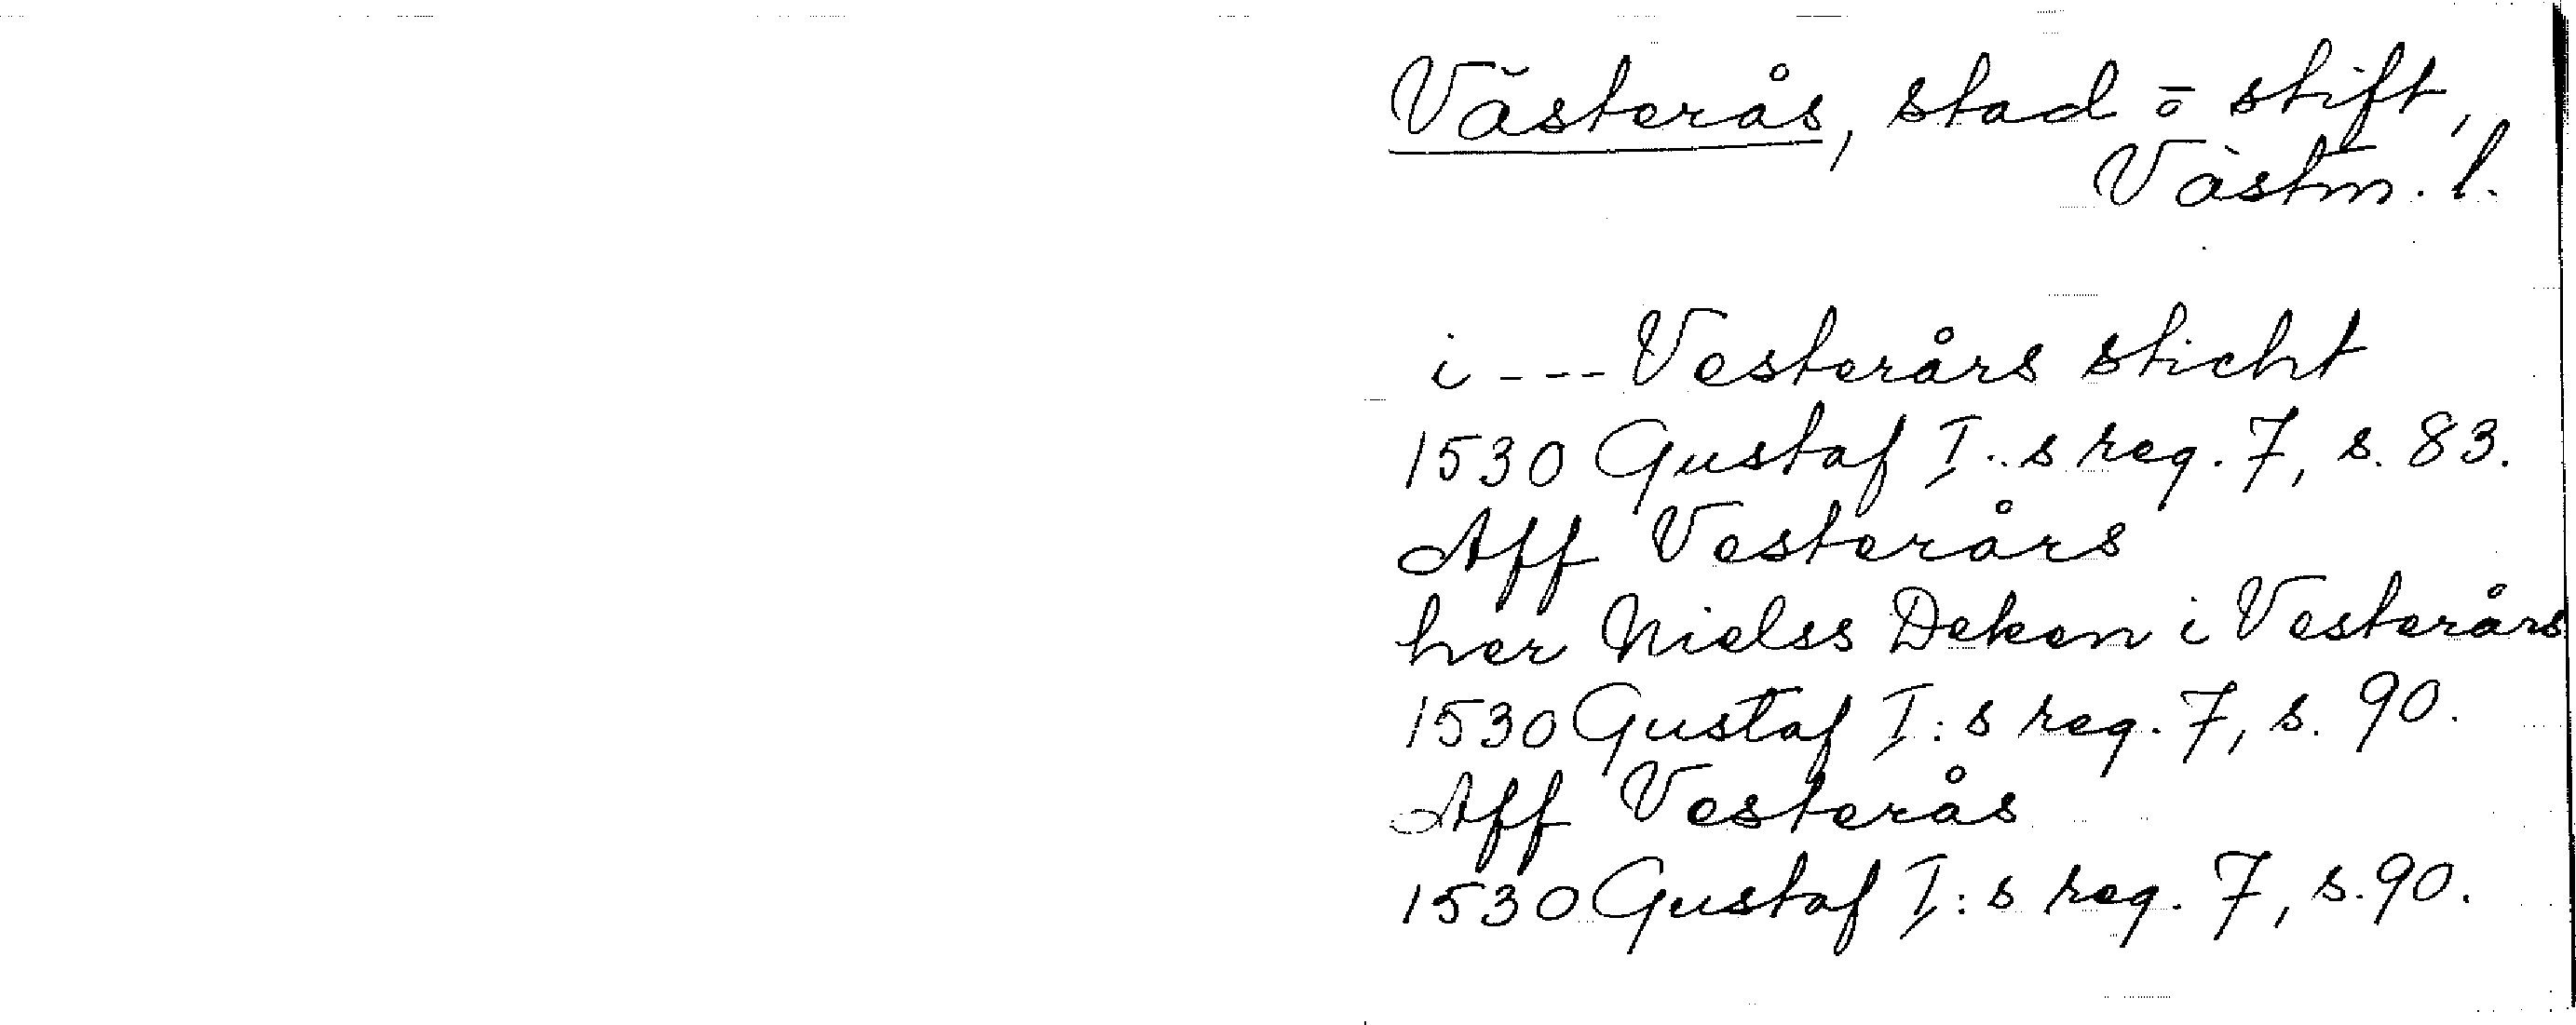 Västerås, stad o stift,
Västm. l.
i --- Vesterårs sticht
1530 Gustaf I:s reg. 7, s. 83.
Aff Vesterårs
her Nielss Deken i Vesterårs
1530 Gustaf I:s reg. 7, s. 90.
Aff Vesterås
1530 Gustaf I:s reg. 7, s. 90.